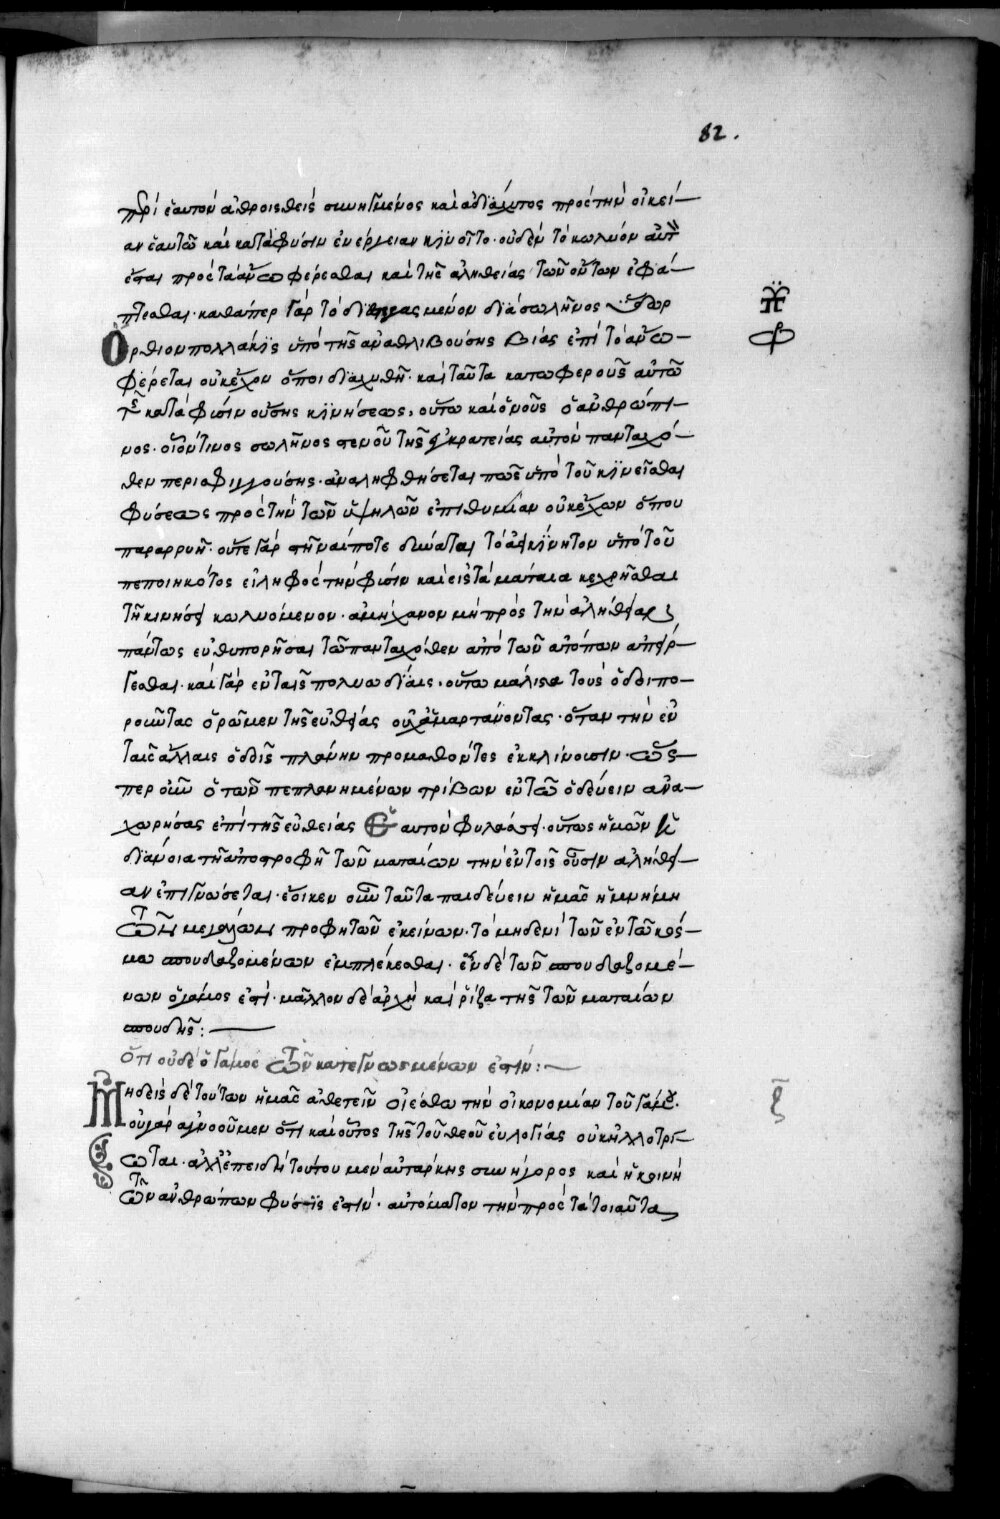 82.
περὶ ἑαυτὸν ἀθροισθεὶς συνηγμένος καὶ ἀδιάχυτος πρὸς τὴν οἰκεί-
αν ἑαυτῶ καὶ κατὰ φύσιν ἐνέργειαν κινοῖτο· οὐδὲν τὸ κωλυόν αὐτ
ἔσται πρὸς τὰ ἄνω φέρεσθαι καὶ τῆς ἀληθείας τῶν ὄντων ἐφά-
πτεσθαι· καθάπερ γὰρ τὸ μένον διὰ σωλῆνος ὕδωρ
ὄρθιον πολλάκις ὑπὸ τῆς ἀναθλιβούσης βίας ἐπὶ τὸ ἄνω-
φέρεται οὐκ ἔχον ὅποι διαχυθῆ· καὶ ταῦτα κατωφεροῦς αὐτῶ
τῆς κατὰ φύσιν οὔσης κινήσεως, οὕτω καὶ ὁ νοῦς ὁ ἀνθρώπι-
νος· οἷόν τινος σωλῆνος στενοῦ τῆς ἐγκρατείας αὐτὸν πανταχό-
θεν περισφιγγούσης· ἀναληφθήσεται πως ὑπὸ τοῦ κινεῖσθαι
φύσεως πρὸς τὴν τῶν ὑψηλῶν ἐπιθυμίαν οὐκ ἔχων ὅπου
παραρρυῆ· οὔτε γὰρ στῆναί ποτε δύναται τὸ ἀεικίνητον ὑπὸ τοῦ
πεποιηκότος εἰληφὸς τὴν φύσιν καὶ εἰς τὰ μάταια κεχρῆσθαι
τῆ κινήσει κωλυόμενον· ἀμήχανον μὴ πρὸς τὴν ἀλήθειαν
πάντως εὐθυπορῆσαι τῶ πανταχόθεν ἀπὸ τῶν ἀτόπων ἀπείρ-
γεσθαι· καὶ γὰρ ἐν ταῖς πολυωδίαις· οὕτω μάλιστα τοὺς ὁδοιπο-
ροῦντας ὁρῶμεν τῆς εὐθείας οὐχ ἁμαρτάνοντας· ὅταν τὴν ἐν
ταῖς ἄλλαις ὁδοῖς πλάνην προμαθόντες ἐκκλίνωσιν· ὥς-
περ οὖν ὁ τῶν πεπλανημένων τρίβων ἐν τῶ ὁδεύειν ἀνα-
χωρήσας ἐπὶ τῆς εὐθείας ἑαυτὸν φυλάσσει· οὕτως ἡμῶν ἡ
διάνοια τῆ ἀποστροφῆ τῶν ματαίων τὴν ἐν τοῖς οὖσιν ἀλήθει-
αν ἐπιγνώσεται· ἔοικεν οὖν ταῦτα παιδεύειν ἡμᾶς ἡ μνήμη
τῶν μεγάλων προφητῶν ἐκείνων· τὸ μηδενὶ τῶν ἐν τῶ κόσ-
μω σπουδαζομένων ἐμπλέκεσθαι· ἓν δὲ τῶν σπουδαζομέ-
νων ὁ γάμος ἐστὶ· μᾶλλον δὲ ἀρχὴ καὶ ῥίζα τῆς τῶν ματαίων
σπουδῆς:
ὅτι οὐδὲ ὁ γάμος τῶν κατεγνωσμένων ἐστίν:
Μηδεὶς δὲ τούτων ἡμᾶς ἀθετεῖν οἰέσθω τὴν οἰκονομίαν τοῦ γάμου·
οὐ γὰρ ἀγνοοῦμεν ὅτι καὶ οὗτος τῆς τοῦ θεοῦ εὐλογίας οὐκ ἠλλοτρί-
ωται· ἀλλ' ἐπειδὴ τούτου μὲν αὐτάρκης συνήγορος καὶ ἡ κοινὴ
τῶν ἀνθρώπων φύσις ἐστίν· αὐτόματον τὴν πρὸς τὰ τοιαῦτα